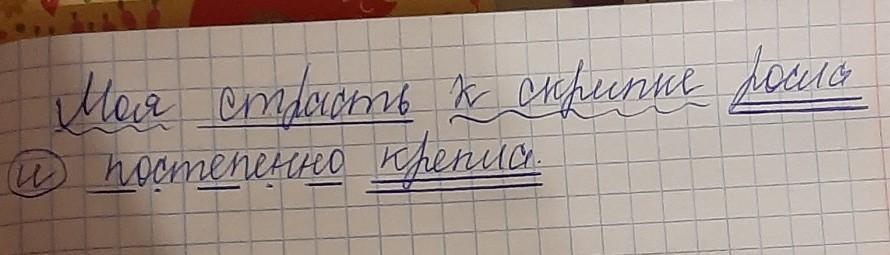 Моя страсть к скрипке росла
и постепенно крепла.